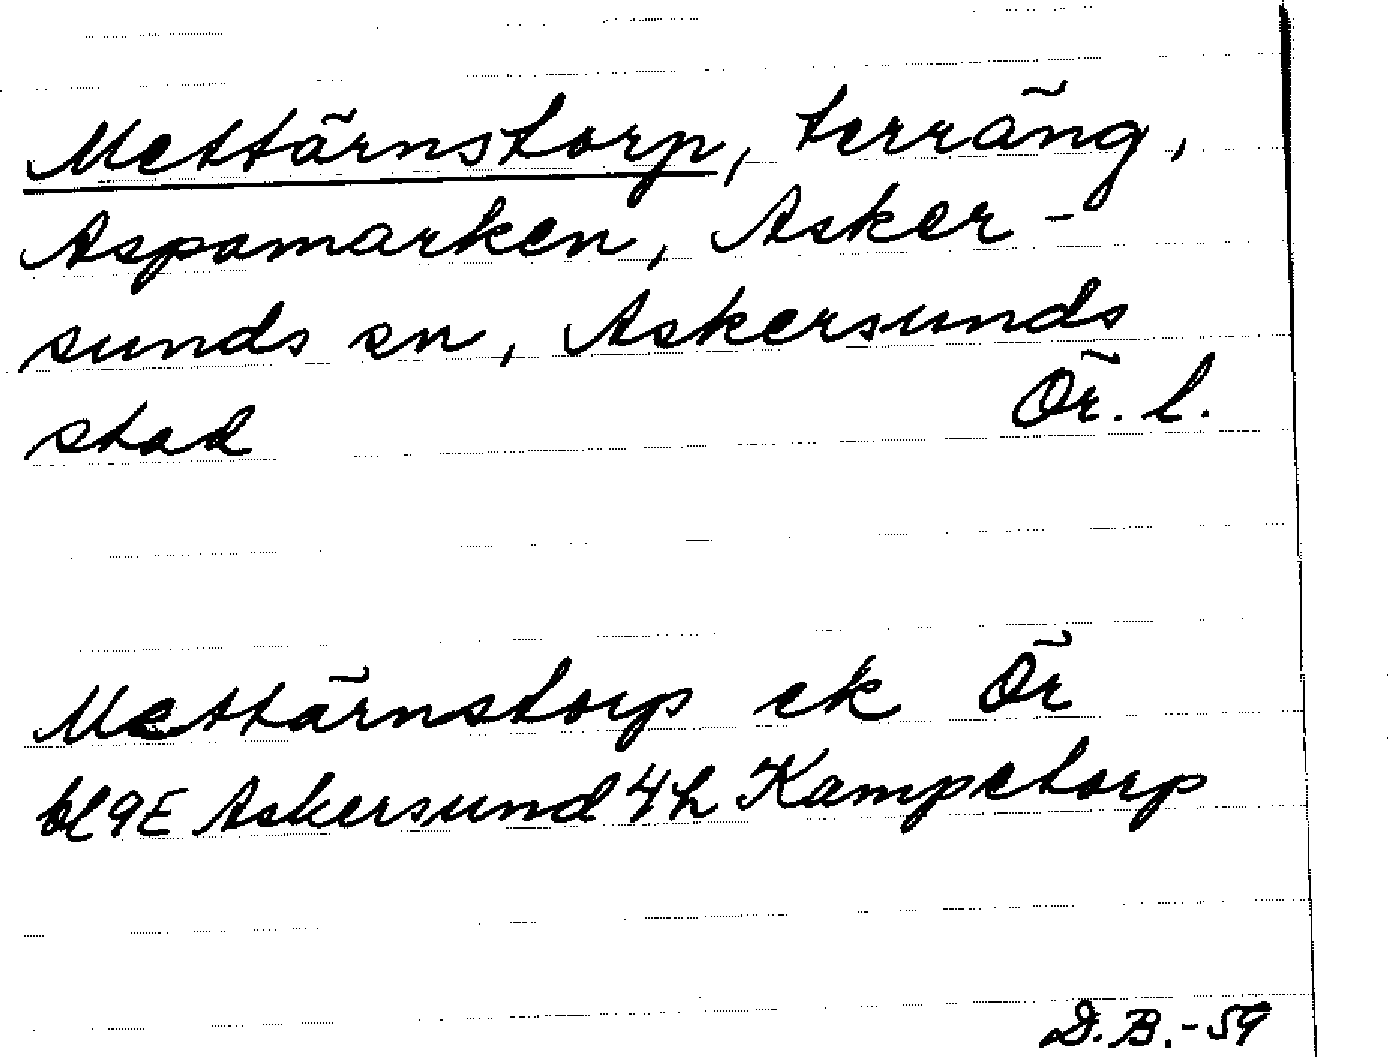 Mettärnstorp, terräng,
Aspamarken, Asker-
sunds sn, Askersunds
stad Ör. l.
Mettärnstorp ek Ör
bl 9E Askersund 4h Kampetorp
D.B.-59